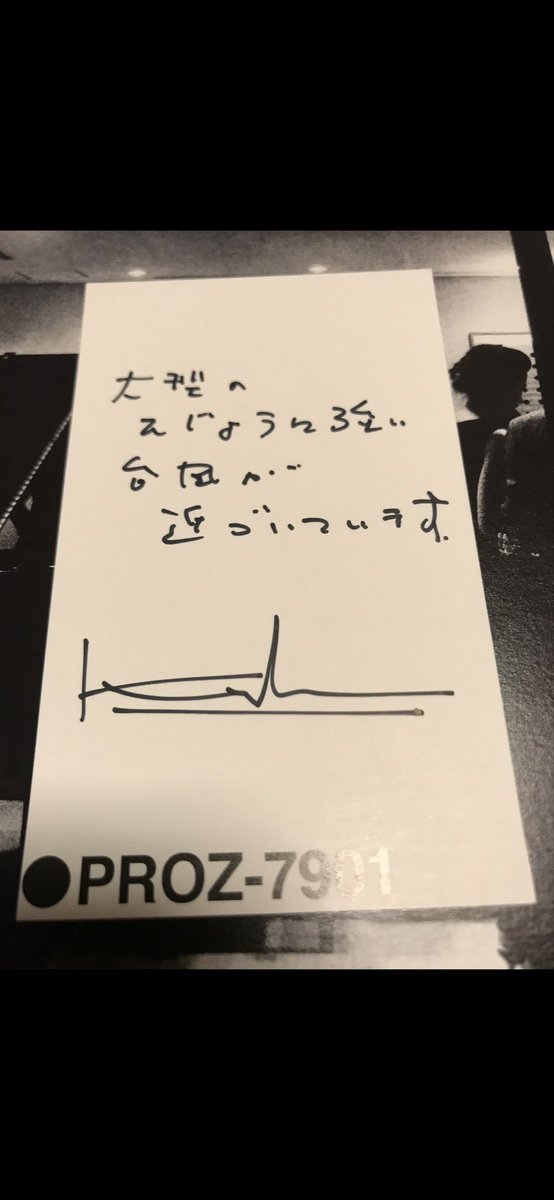 大型の
ひじょうに強い
台風が
近づいています.
●PROZ-7901